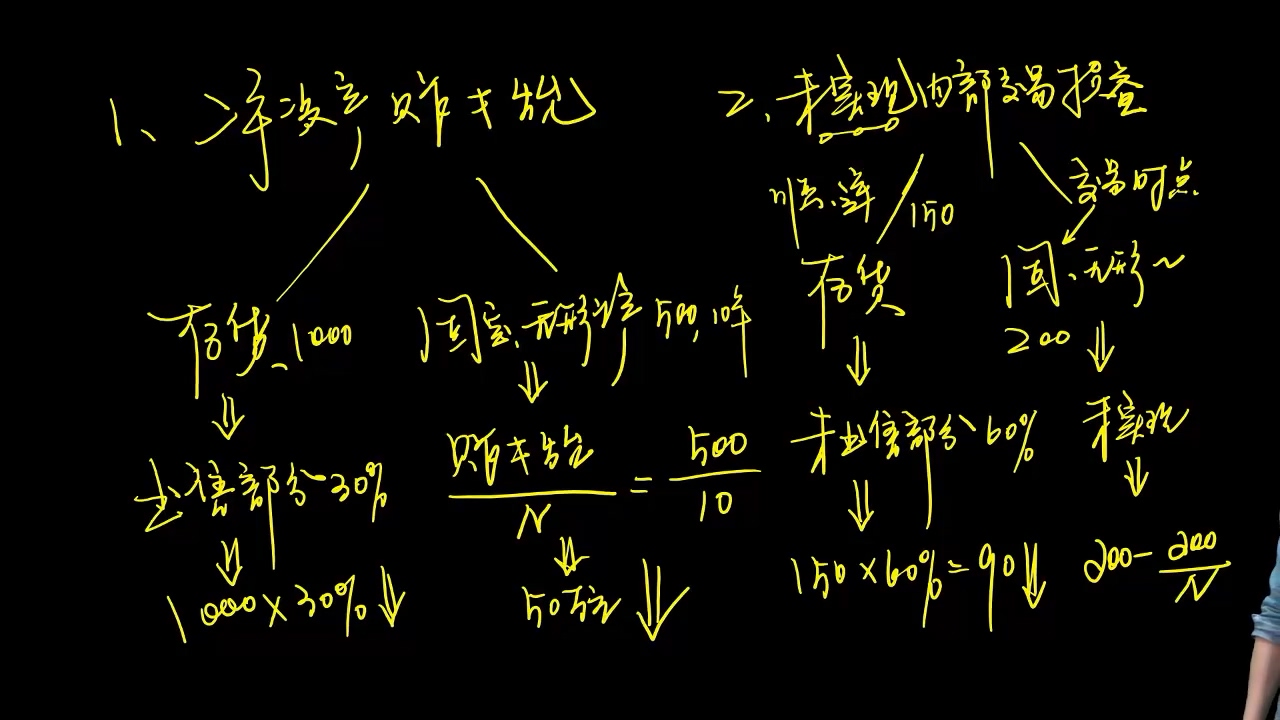 1、净资产贬才能
2、未实现内部交易损益
顺、逆
150
交易时点
存货、1000
固定、无形资产 500,10年
存货
固、无形~
200
出售部分30%
贬才能/N = 500/10
未出售部分60%
未实现
1000×30%↓
50万元↓
150×60%=90↓
200-200/N